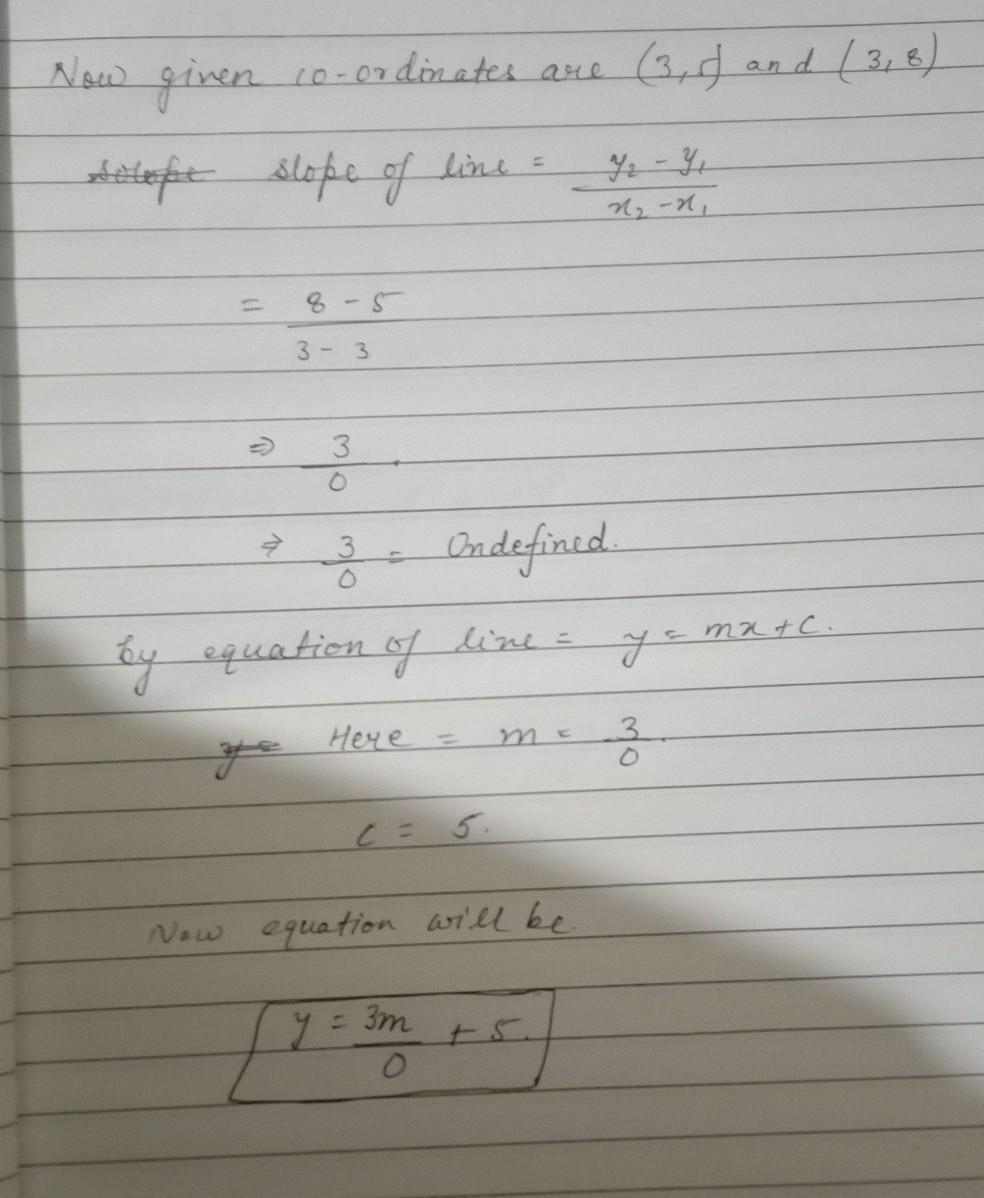 Now given co-ordinates are (3,5) and (3,8)
slope of line = y₂ - y₁ / x₂ - x₁
= 8 - 5 / 3 - 3
⇒ 3 / 0 .
⇒ 3 / 0 = Ondefined.
by equation of line = y = mx + c.
y = Here = m = 3 / 0 .
c = 5.
Now equation will be.
y = 3m / 0 + 5.